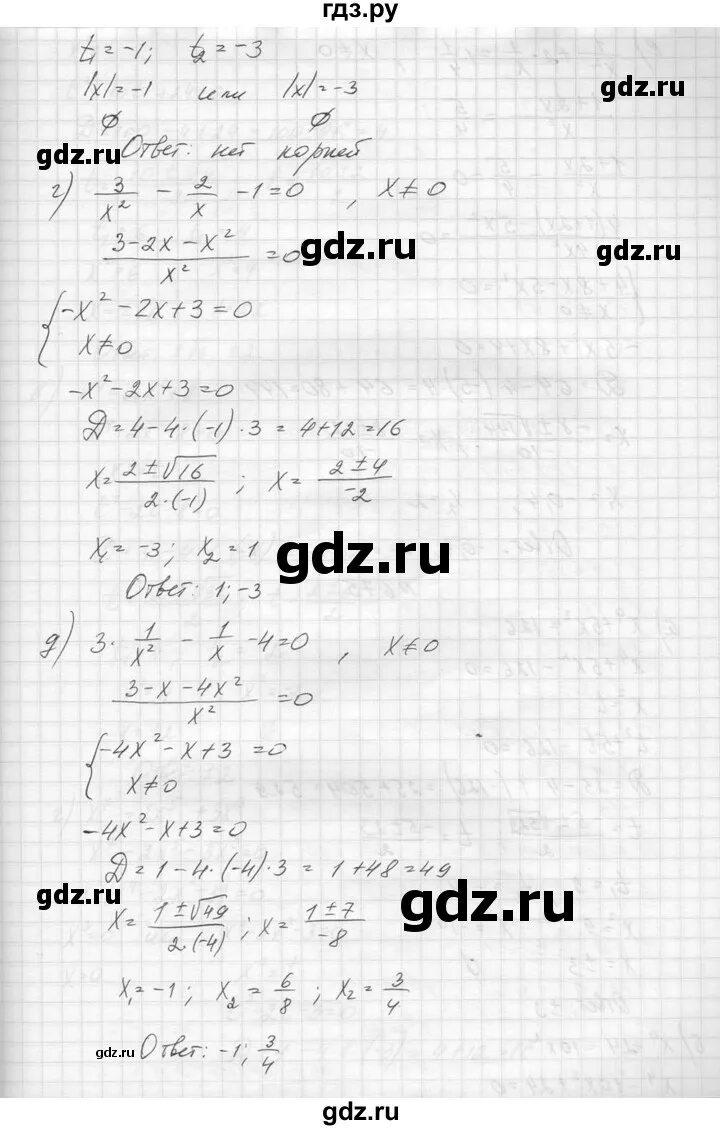 гдз.ру
t₁ = -1; t₂ = -3
|x| = -1 или |x| = -3
gdz.ru
∅ ∅
gdz.ru
Ответ: нет корней
г) 3/x² - 2/x - 1 = 0, x ≠ 0
gdz.ru
gdz.ru
(3 - 2x - x²)/x² = 0
{ -x² - 2x + 3 = 0
x ≠ 0
-x² - 2x + 3 = 0
D = 4 - 4·(-1)·3 = 4 + 12 = 16
x = (2 ± √16)/(2·(-1)); x = (2 ± 4)/(-2)
x₁ = -3; x₂ = 1
gdz.ru
Ответ: 1; -3
д) 3·1/x² - 1/x - 4 = 0, x ≠ 0
(3 - x - 4x²)/x² = 0
{ -4x² - x + 3 = 0
x ≠ 0
-4x² - x + 3 = 0
D = 1 - 4·(-4)·3 = 1 + 48 = 49
gdz.ru
gdz.ru
x = (1 ± √49)/(2·(-4)); x = (1 ± 7)/(-8)
x₁ = -1; x₂ = 6/8; x₂ = 3/4
gdz.ru
Ответ: -1; 3/4
gdz.ru
gdz.ru